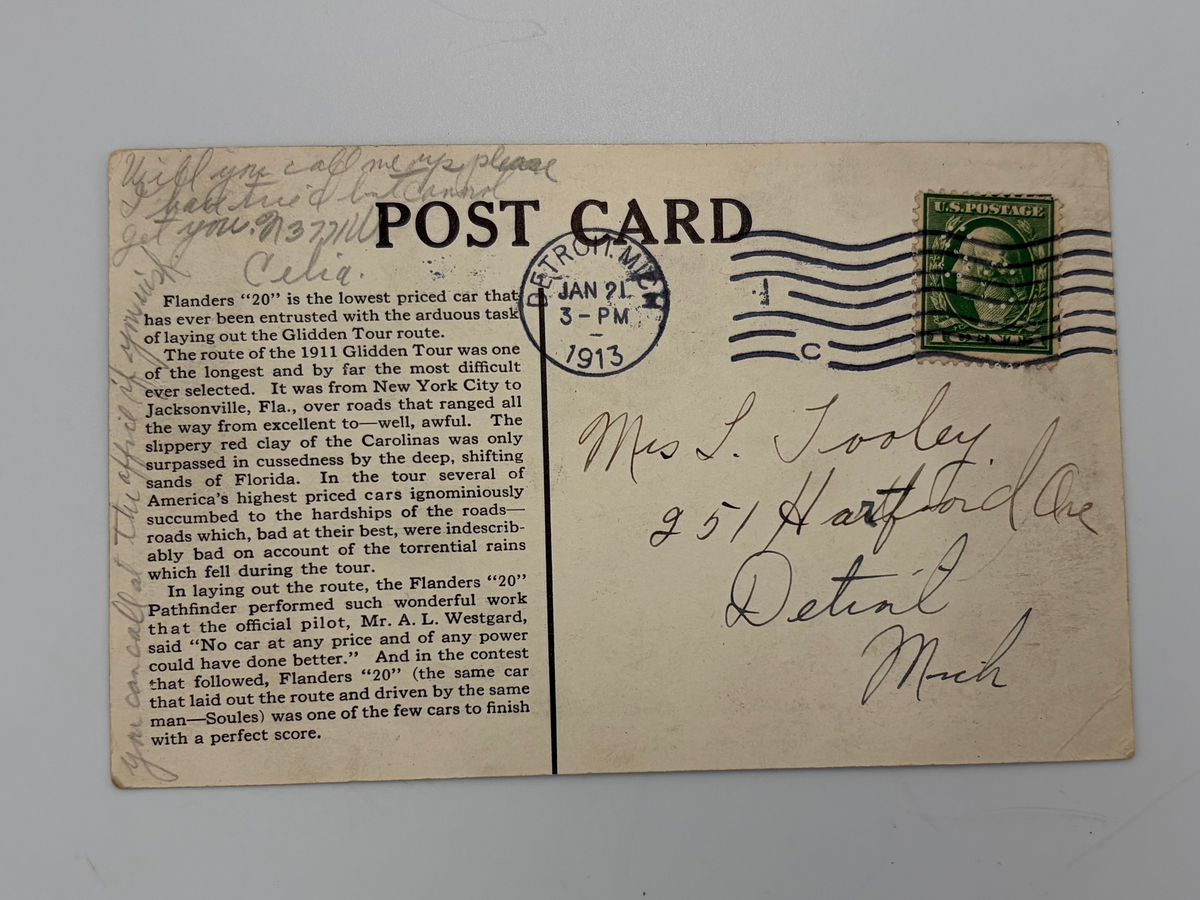 Will you call me up please
I have tried but cannot
get you.
Celia.
you can call at the office if you wish
POST CARD
DETROIT, MICH
JAN 21
3-PM
1913
1
C
U.S. POSTAGE
Flanders “20” is the lowest priced car that
has ever been entrusted with the arduous task
of laying out the Glidden Tour route.
The route of the 1911 Glidden Tour was one
of the longest and by far the most difficult
ever selected. It was from New York City to
Jacksonville, Fla., over roads that ranged all
the way from excellent to—well, awful. The
slippery red clay of the Carolinas was only
surpassed in cussedness by the deep, shifting
sands of Florida. In the tour several of
America’s highest priced cars ignominiously
succumbed to the hardships of the roads—
roads which, bad at their best, were indescrib-
ably bad on account of the torrential rains
which fell during the tour.
In laying out the route, the Flanders “20”
Pathfinder performed such wonderful work
that the official pilot, Mr. A. L. Westgard,
said “No car at any price and of any power
could have done better.” And in the contest
that followed, Flanders “20” (the same car
that laid out the route and driven by the same
man—Soules) was one of the few cars to finish
with a perfect score.
Mrs L. Tooley
251 Hartford Ave
Detroit
Mich